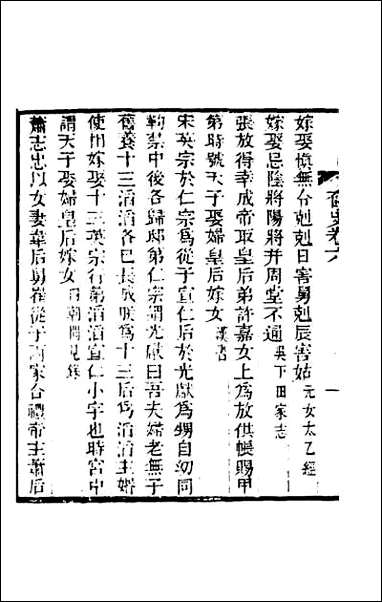 奩史卷六 一
嫁娶愼無合尅尅日害舅尅辰害姑元女太乙經
嫁娶忌陰將陽將并周堂不通吳下田家志
張放得幸成帝取皇后弟許嘉女上爲放供帳賜甲
第時號天子娶婦皇后嫁女漢書
宋英宗於仁宗爲從子宣仁后於光獻爲甥自幼同
鞠禁中後各歸邸第仁宗謂光獻曰吾夫婦老無子
舊養十三滔滔各已長成朕爲十三后爲滔滔主婚
使相嫁娶十三英宗行第滔滔宣仁小字也時宮中
謂天子娶婦皇后嫁女聞見錄
蕭志忠以女妻韋后舅崔從子兩家合禮帝主蕭后